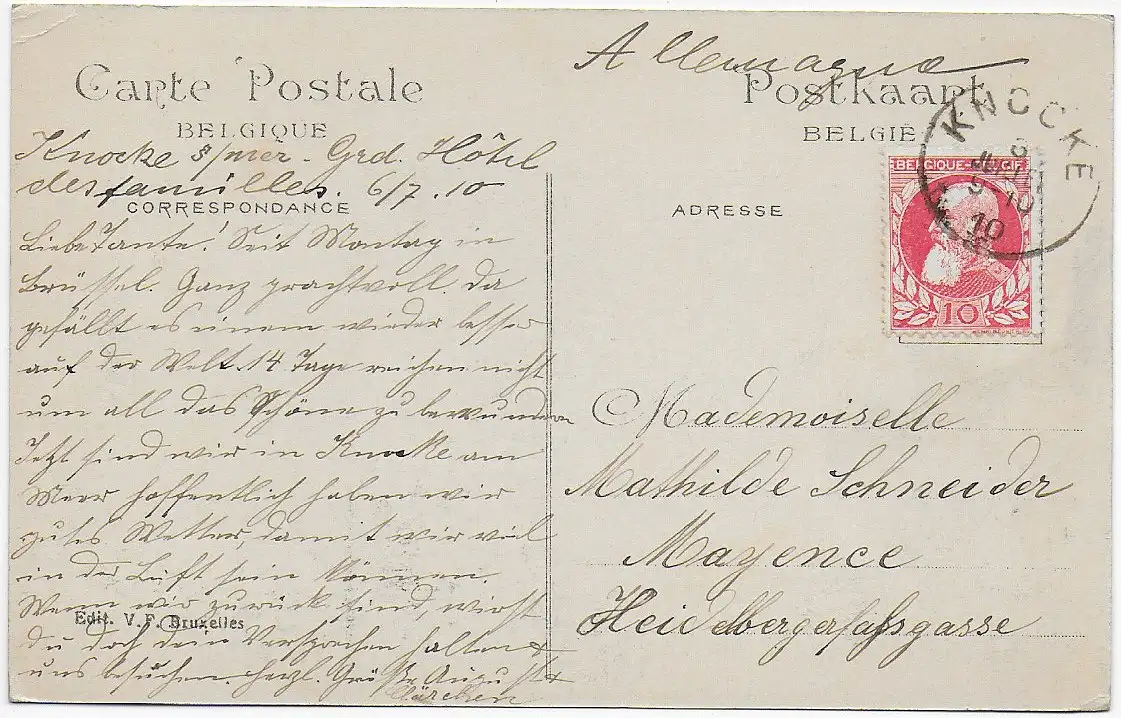 Allemagne
Carte Postale
BELGIQUE
Postkaart
BELGIË
Knocke s/mer - Grd. Hôtel
des familles. 6/7. 10
CORRESPONDANCE
ADRESSE
Liebe Tante! Seit Montag in
Brüssel. Ganz prachtvoll. Da
gefällt es einem wieder besser
auf der Welt. 14 Tage reichen nicht
um all das Schöne zu bewundern
Jetzt sind wir in Knocke am
Meer hoffentlich haben wir
gutes Wetter, damit wir viel
in der Luft sein können.
Wenn wir zurück sind, wirst
Edit. V. F. Bruxelles
du doch dein Versprechen halten &
uns besuchen. herzl. Grüße August &
Clärchen
KNOCKE
10
BELGIQUE-BELGIË
10
Mademoiselle
Mathilde Schneider
Mayence
Heidelbergerfaßgasse